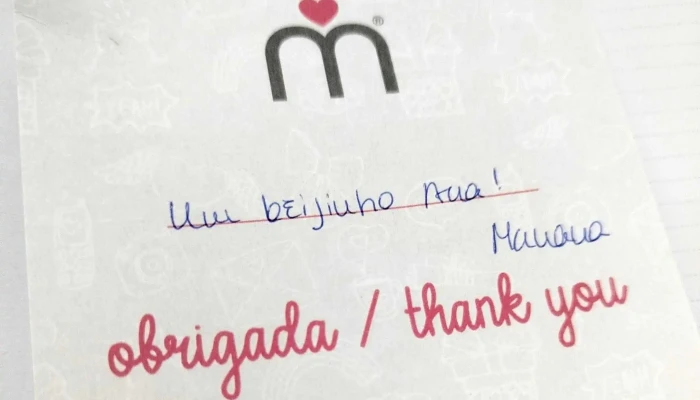 m®
Um beijinho Ana!
Mariana
obrigada / thank you